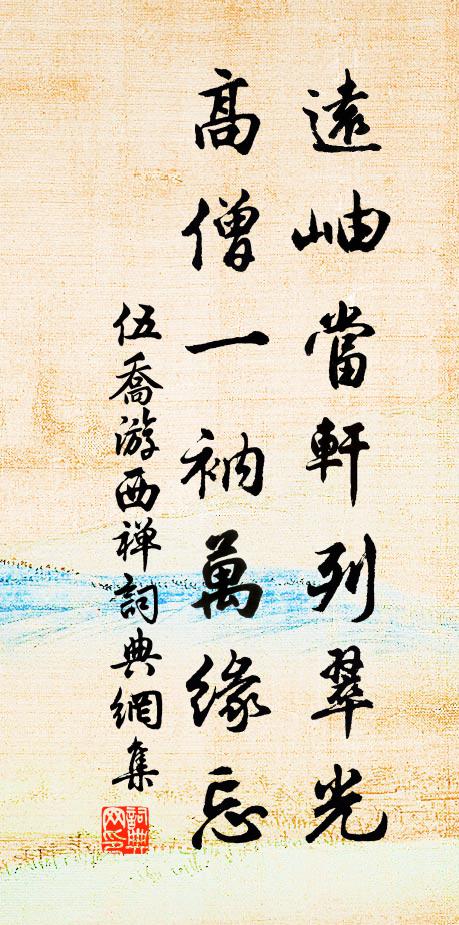 遠岫當軒列翠光
高僧一衲萬緣忘
伍喬游西禅詞典網集
詞典网印